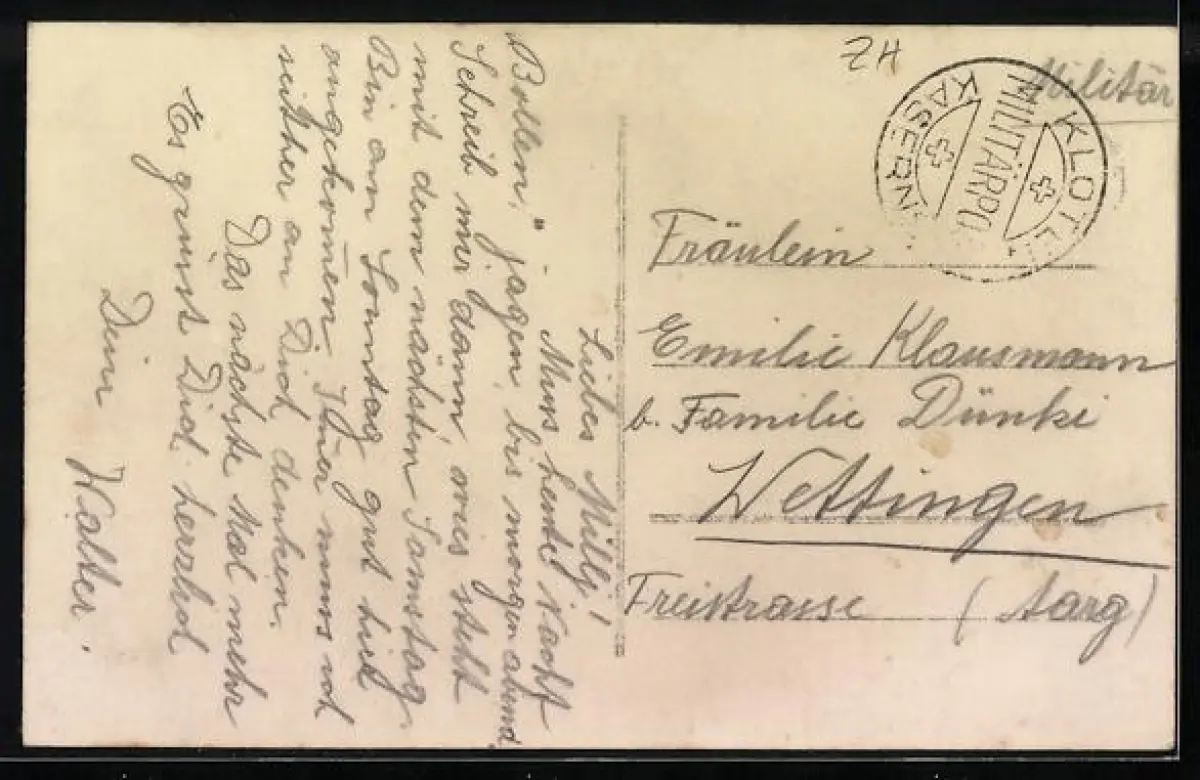 ZH
Militär
KLOTE
MILITÄRPO
KASERN
Fräulein
Emilie Klausmann
b. Familie Dünki
Wettingen
Freistrasse (Aarg)
Liebes Milly!
Muss heute Nacht
Bollem," jagen, bis morgen abend.
Schreib mir dann, wies steht
mit dem nächsten Samstag.
Bin am Sonntag gut hier
angekom̅en. Im̅er muss ich
seither an Dich denken.
Das nächste Mal mehr
Es grüsst Dich herzlich
Dein Walter.